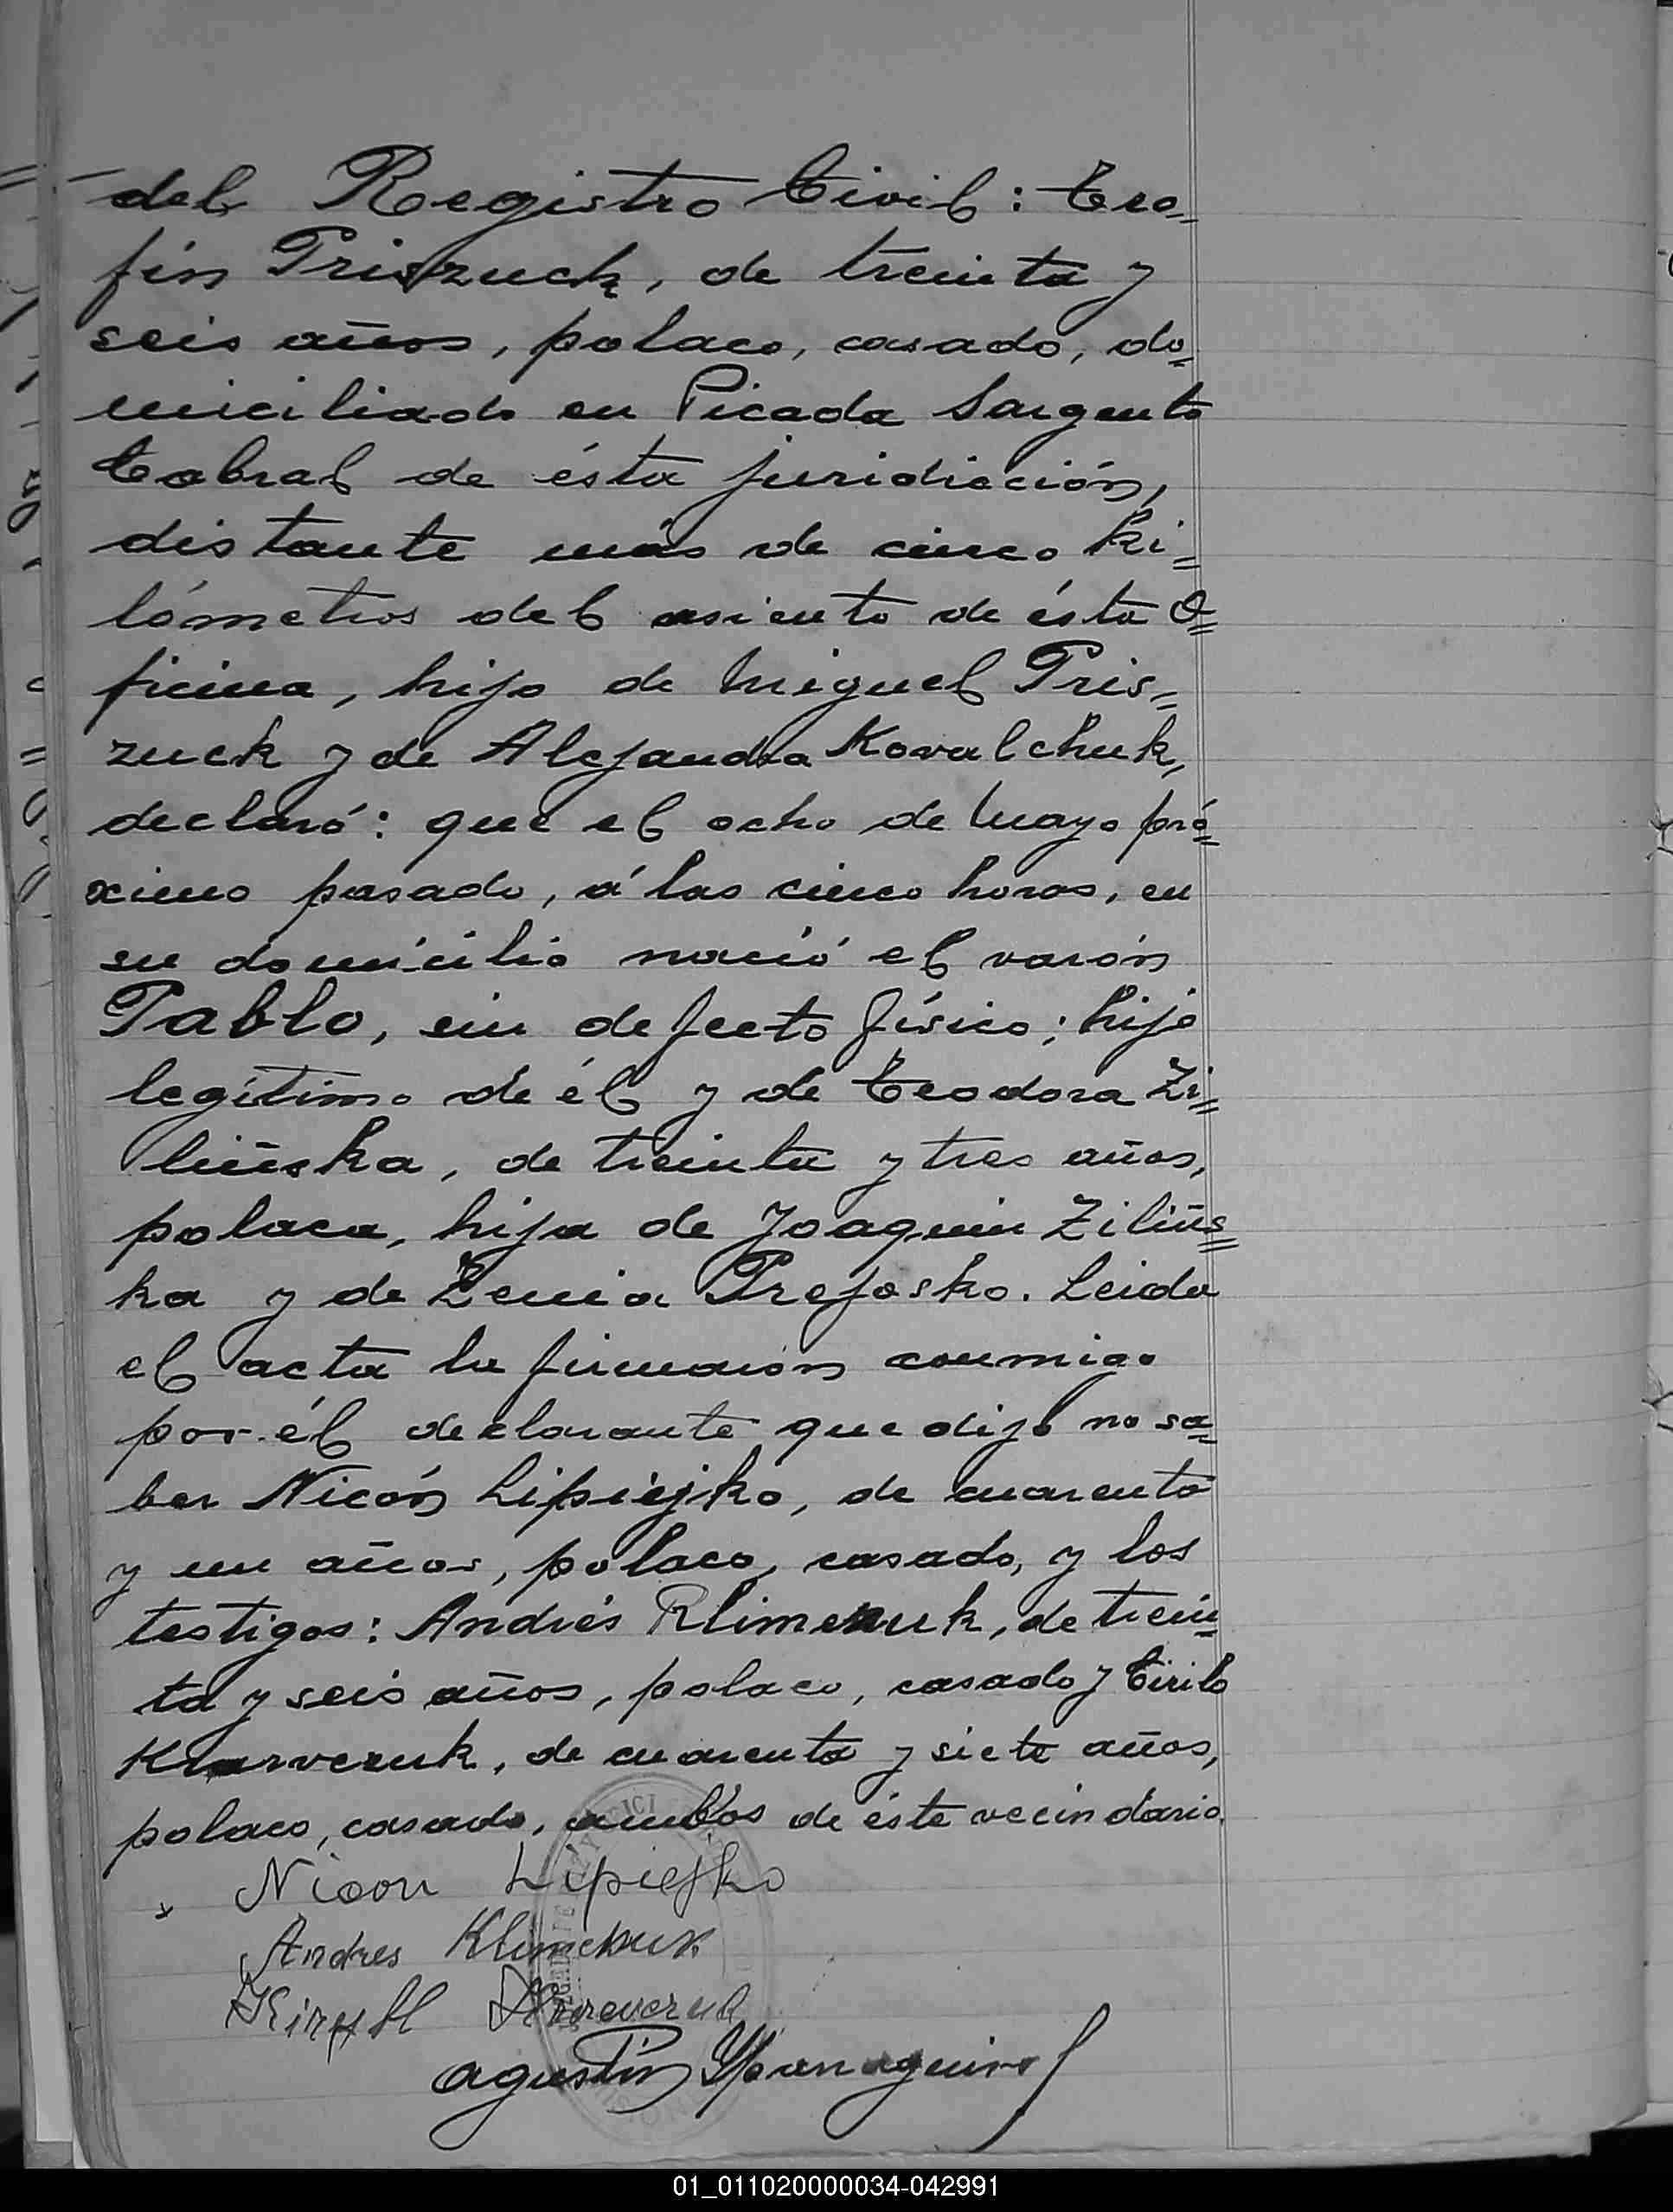 del Registro Civil: Teo=
fín Priszuck, de treinta y
seis años, polaco, casado, do=
miciliado en Picada Sargento
Cabral de ésta juridicción,
distante más de cinco ki=
lómetros del asiento de ésta O=
ficina, hijo de Miguel Pris=
zuck y de Alejandra Kovalchuk,
declaró: que el ocho de Mayo pró=
ximo pasado, á las cinco horas, en
su domicilio nació el varón
Pablo, sin defecto físico; hijo
legítimo de él y de Teodora Zi=
liñska, de treinta y tres años,
polaca, hija de Joaquin Ziliñs=
ka y de Zenia Prejosko. Leida
el acta la firmaron conmigo
por él declarante que dijo no sa=
ber Nicón Lipiejko, de cuarenta
y un años, polaco, casado, y los
testigos: Andrés Klimenuk, de trein=
ta y seis años, polaco, casado y Cirilo
Krarvczuk, de cuarenta y siete años,
polaco, casado, ambos de éste vecindario.
Nicon Lipiejko
Andres Klimenuk
Kirył
Agustín
01_011020000034-042991